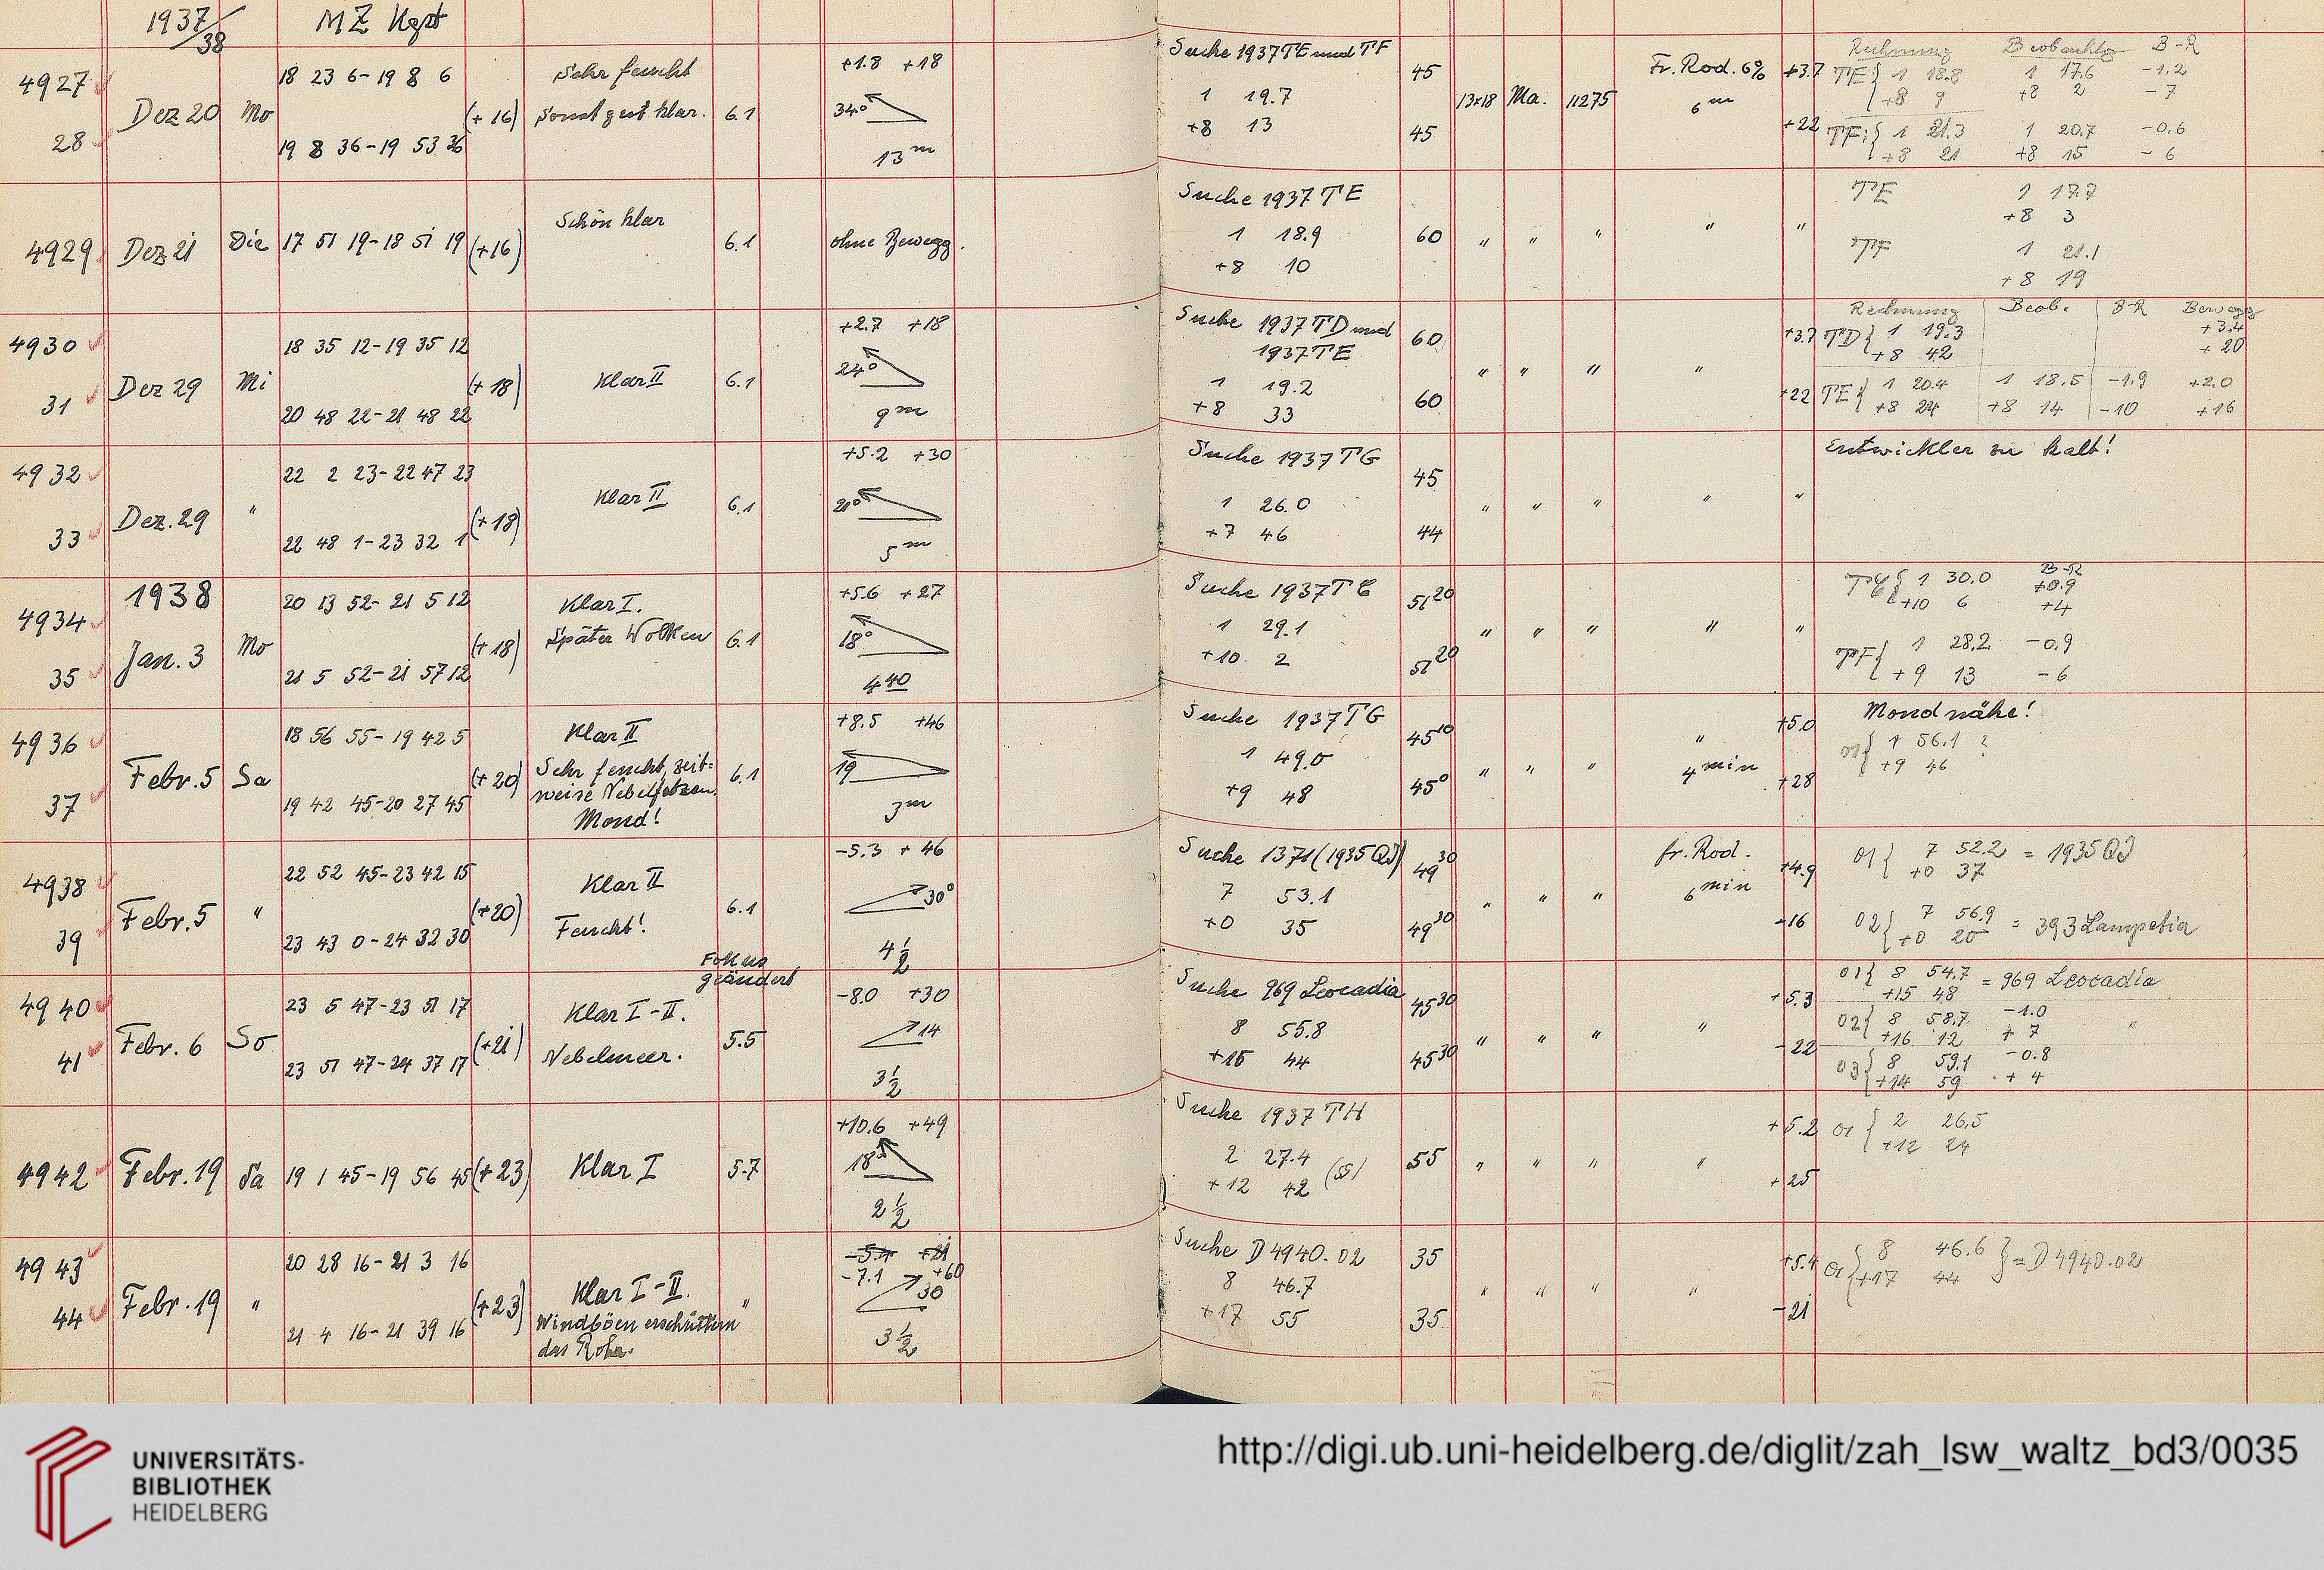 1937/38 MZ Kgst
4927 18 23 6 - 19 8 6 Sehr feucht +1.8 +18 Suche 1937 TE und TF 45 Fr. Rod. 6% +3.7 Rechnung Beobachtg B-R
Dez 20 Mo (+16) sonst gut klar. 6.1 34° 1 19.7 13x18 Ma. 11275 6m TE { 1 18.8 1 17.6 -1.2
+8 9 +8 2 -7
28 19 8 36 - 19 53 36 13m +8 13 45 +22 TF: { 1 21.3 1 20.7 -0.6
+8 21 +8 15 -6
4929 Dez 21 Die 17 51 19 - 18 51 19 (+16) Schön klar 6.1 ohne Bewegg. Suche 1937 TE
1 18.9 60 " " " " "
+8 10
TE 1 17.7
+8 3
TF 1 21.1
+8 19
4930 18 35 12 - 19 35 12 +2.7 +18 Suche 1937 TD und 60 +3.7 Rechnung Beob. B-R Bewegg
1937 TE TD { 1 19.3 +3.4
+8 42 +20
31 Dez 29 Mi (+18) Klar II 6.1 24° 1 19.2 " " " "
20 48 22 - 21 48 22 9m +8 33 60 +22 TE { 1 20.4 1 18.5 -1.9 +2.0
+8 24 +8 14 -10 +16
4932 22 2 23 - 22 47 23 +5.2 +30 Suche 1937 TG 45 Entwickler zu kalt!
33 Dez. 29 " (+18) Klar II 6.1 20° 1 26.0 " " " " "
22 48 1 - 23 32 1 5m +7 46 44
1938
4934 20 13 52 - 21 5 12 Klar I. +5.6 +27 Suche 1937 TC 51 20 B-R
Jan. 3 Mo (+18) Später Wolken 6.1 18° 1 29.1 " " " " " { 1 30.0 +0.9
+10 6 +4
35 21 5 52 - 21 57 12 4 40 +10 2 51 20 TF { 1 28.2 -0.9
+9 13 -6
4936 18 56 55 - 19 42 5 Klar II +8.5 +46 Suche 1937 TG 45 10 +5.0 Mondnähe!
Febr. 5 Sa (+20) Sehr feucht, zeit= 6.1 19 1 49.0 " " " " 01 { 1 56.1 ?
weise Nebelfetzen. 4 min +9 46
37 19 42 45 - 20 27 45 Mond! 3m +9 48 45 0 +28
4938 22 52 45 - 23 42 15 Klar II -5.3 +46 Suche 1371 (1935 QJ) 49 30 fr. Rod. +4.9 01 { 7 52.2 = 1935 QJ
+0 37
39 Febr. 5 " (+20) Feucht! 6.1 30° 7 53.1 " " " 6 min
23 43 0 - 24 32 30 4 1/2 +0 35 49 30 -16 02 { 7 56.9 = 393 Lampetia
+0 20
Fokus
geändert
4940 23 5 47 - 23 51 17 Klar I-II. -8.0 +30 Suche 969 Leocadia 45 30 +5.3 01 { 8 54.7 = 969 Leocadia
+15 48
Febr. 6 So (+21) 5.5 14 8 55.8 " " " " 02 { 8 58.7 -1.0 "
+16 12 +7
41 23 51 47 - 24 37 17 Nebelmeer. 3 1/2 +15 44 45 30 -22 03 { 8 59.1 -0.8
+14 59 +4
4942 Febr. 19 Sa 19 1 45 - 19 56 45 (+23) Klar I 5.7 +10.6 +49 Suche 1937 TH
18° 2 27.4 (55) 55 " " " " +5.2 01 { 2 26.5
2 1/2 +12 42 +25 +12 24
4943 20 28 16 - 21 3 16 -5.4 +21 Suche D 4940.02 35 +5.4 01 { 8 46.6 } = D 4940.02
-7.1 +60 8 46.7 +17 44
44 Febr. 19 " (+23) Klar I-II. " 30 " " " "
21 4 16 - 21 39 16 Windböen erschüttern 3 1/2 +17 55 35 -21
das Rohr.
UNIVERSITÄTS-
BIBLIOTHEK
HEIDELBERG
http://digi.ub.uni-heidelberg.de/diglit/zah_lsw_waltz_bd3/0035